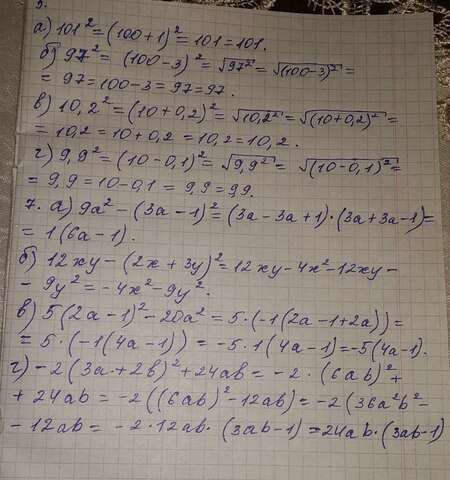 5.
а) 101² = (100+1)² = 101 = 101.
б) 97² = (100-3)² = √97² = √(100-3)² =
= 97 = 100-3 = 97 = 97.
в) 10,2² = (10+0,2)² = √10,2² = √(10+0,2)² =
= 10,2 = 10+0,2 = 10,2 = 10,2.
г) 9,9² = (10-0,1)² = √9,9² = √(10-0,1)² =
= 9,9 = 10-0,1 = 9,9 = 9,9.
7. а) 9a² - (3a-1)² = (3a-3a+1)·(3a+3a-1) =
= 1(6a-1).
б) 12xy - (2x+3y)² = 12xy - 4x² - 12xy -
- 9y² = -4x² - 9y².
в) 5(2a-1)² - 20a² = 5·(-1(2a-1+2a)) =
= 5·(-1(4a-1)) = -5·1(4a-1) = -5(4a-1).
г) -2(3a+2b)² + 24ab = -2·(6ab)² +
+ 24ab = -2((6ab)² - 12ab) = -2(36a²b² -
- 12ab = -2·12ab·(3ab-1) = 24ab·(3ab-1)